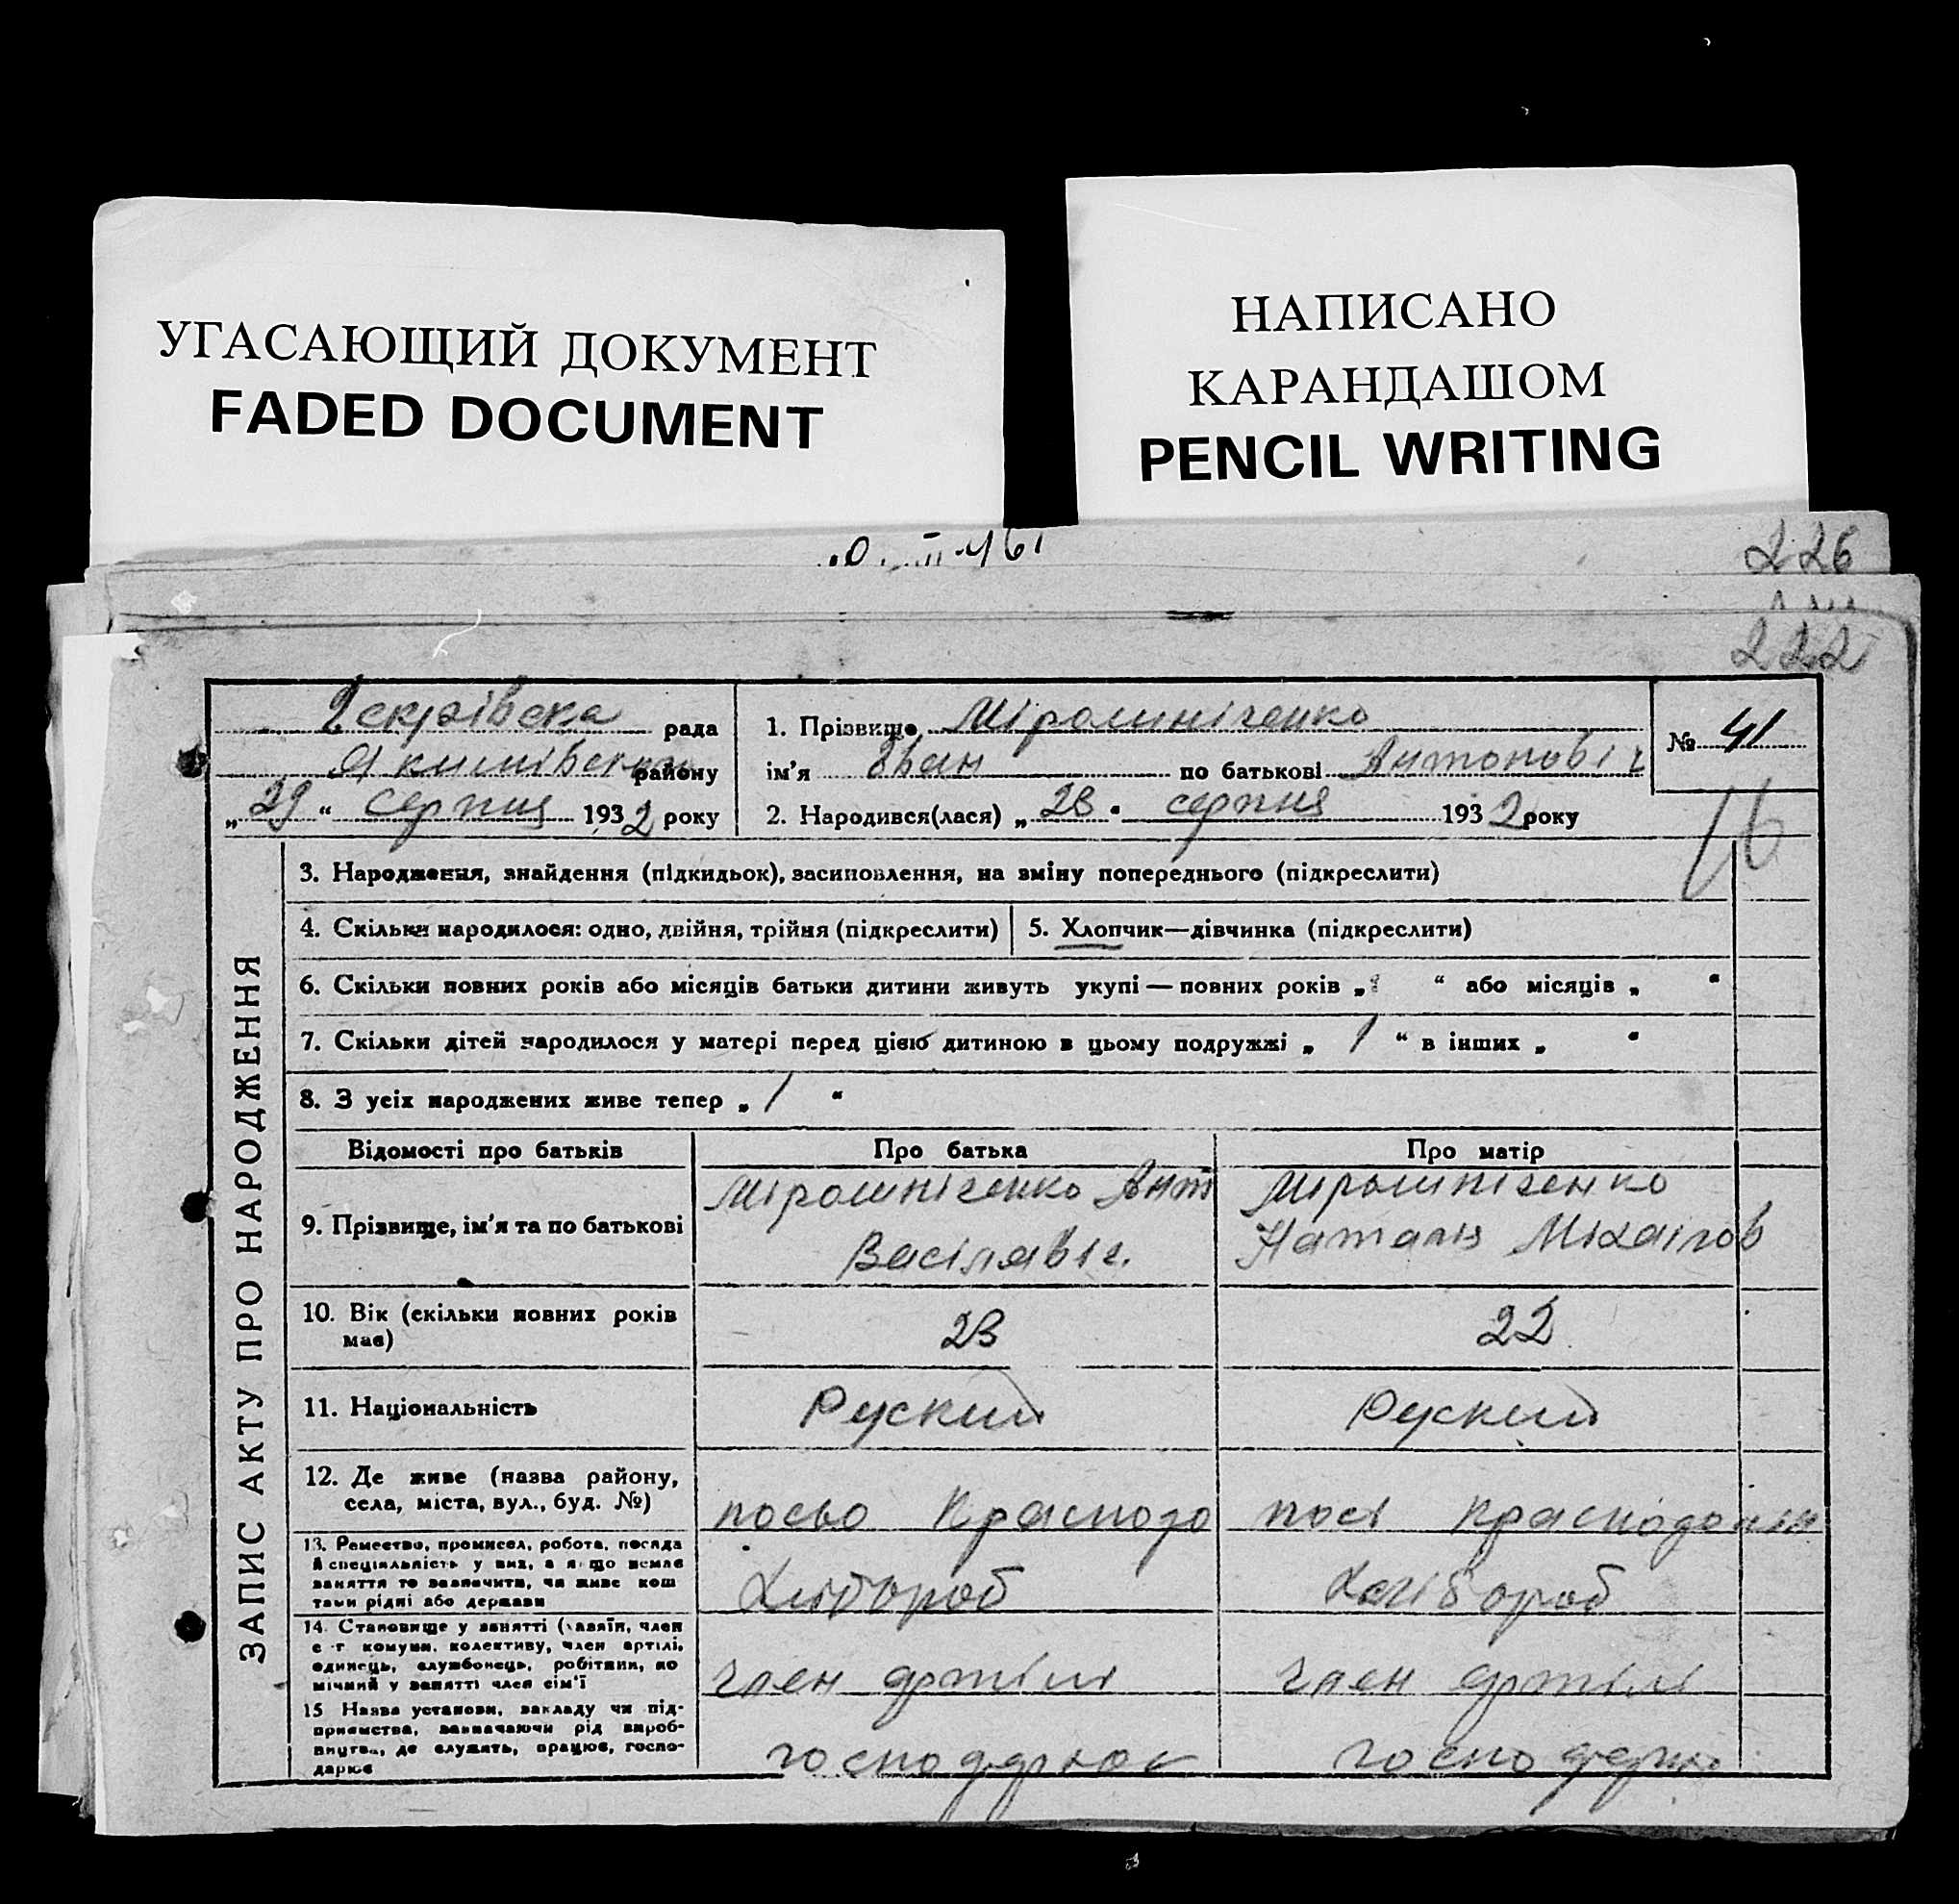 УГАСАЮЩИЙ ДОКУМЕНТ
FADED DOCUMENT
НАПИСАНО
КАРАНДАШОМ
PENCIL WRITING
226
222
рада
району
„29“ серпня 1932 року
1. Прізвище Мірошніченко
ім'я Іван по батькові Антоновіч
2. Народився(лася) „28“ серпня 1932 року
№ 41
16
ЗАПИС АКТУ ПРО НАРОДЖЕННЯ
3. Народження, знайдення (підкидьок), засиновлення, на зміну попереднього (підкреслити)
4. Скільки народилося: одно, двійня, трійня (підкреслити)
5. Хлопчик—дівчинка (підкреслити)
6. Скільки повних років або місяців батьки дитини живуть укупі — повних років „ “ або місяців „ “
7. Скільки дітей народилося у матері перед цією дитиною в цьому подружжі „ 1 “ в інших „ “
8. З усіх народжених живе тепер „ 1 “
Відомості про батьків
Про батька
Про матір
9. Прізвище, ім'я та по батькові
Мірошніченко Ант
Васілявіч.
Мірошніченко
Наталія Міхаілов
10. Вік (скільки повних років
має)
23
22
11. Національність
Руский
Руский
12. Де живе (назва району,
села, міста, вул., буд. №)
13. Ремество, промисел, робота, посада
й спеціяльність у них, а якщо немає
заняття то зазначити, чи живе кош
тами рідні або держави
Хлібороб
Хлібороб
14. Становище у занятті (хазяїн, член
с г комуни, колективу, член артілі,
одинець, службовець, робітник, по
мічний у занятті член сім'ї
член артілі
член артілі
15 Назва установи, закладу чи під-
приємства, зазначаючи рід вироб-
ництва, де служить, працює, госпо-
дарює